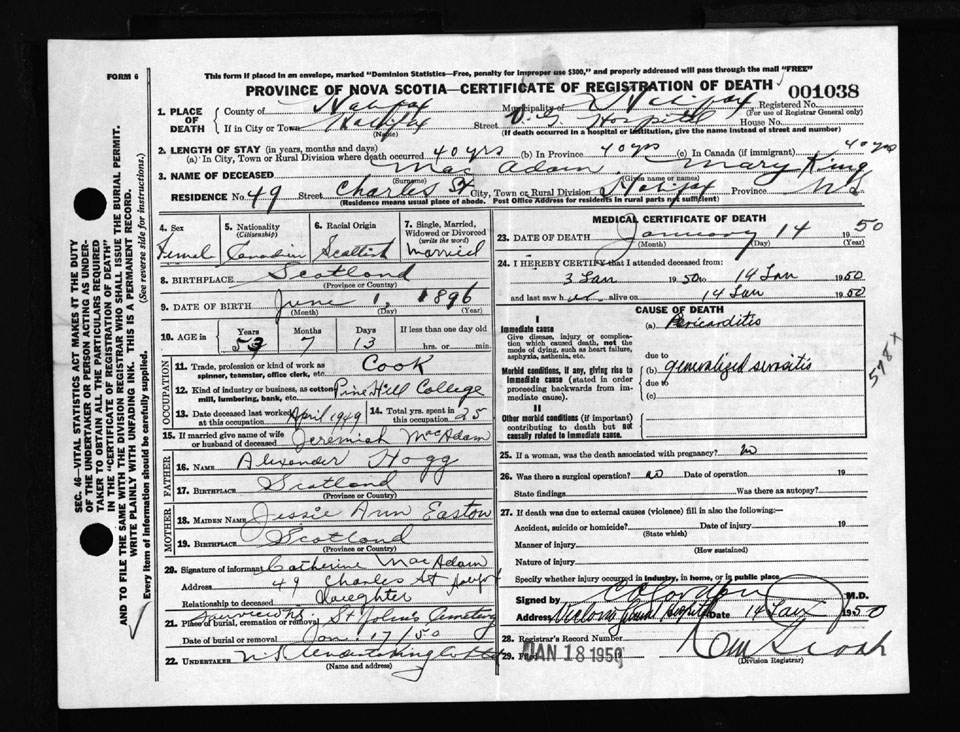 FORM 6
This form if placed in an envelope, marked "Dominion Statistics—Free, penalty for improper use $300," and properly addressed will pass through the mail "FREE"
PROVINCE OF NOVA SCOTIA—CERTIFICATE OF REGISTRATION OF DEATH
001038
1. PLACE OF DEATH
County of Halifax Municipality of Halifax Registered No.
(For use of Registrar General only)
If in City or Town Halifax Street V.G. Hospital House No.
(Name) (If death occurred in a hospital or institution, give the name instead of street and number)
2. LENGTH OF STAY (in years, months and days)
(a) In City, Town or Rural Division where death occurred 40 yrs (b) In Province 40 yrs (c) In Canada (if immigrant) 40 yrs
3. NAME OF DECEASED Mac Adam Mary King
(Surname) (Given name or names)
RESIDENCE No 49 Street Charles St City, Town or Rural Division Halifax Province N.S.
(Residence means usual place of abode. Post Office Address for residents in rural parts not sufficient)
4. Sex Femal
5. Nationality (Citizenship) Canadian
6. Racial Origin Scottish
7. Single, Married, Widowed or Divorced (write the word) married
8. BIRTHPLACE Scotland
(Province or Country)
9. DATE OF BIRTH June 1, 1896
(Month) (Day) (Year)
10. AGE in Years Months Days If less than one day old
53 7 13 hrs. or min.
OCCUPATION
11. Trade, profession or kind of work as spinner, teamster, office clerk, etc. Cook
12. Kind of industry or business, as cotton mill, lumbering, bank, etc. Pine Hill College
13. Date deceased last worked at this occupation April 1949
14. Total yrs. spent in this occupation 25
15. If married give name of wife or husband of deceased Jeremiah MacAdam
FATHER
16. NAME Alexander Hogg
17. BIRTHPLACE Scotland
(Province or Country)
MOTHER
18. MAIDEN NAME Jessie Ann Easton
19. BIRTHPLACE Scotland
(Province or Country)
20. Signature of informant Catherine MacAdam
Address 49 Charles St
Relationship to deceased Daughter
21. Place of burial, cremation or removal Fairview N.S. St John's Cemetery
Date of burial or removal Jan 17/50
22. UNDERTAKER
(Name and address)
MEDICAL CERTIFICATE OF DEATH
23. DATE OF DEATH January 14 1950
(Month) (Day) (Year)
24. I HEREBY CERTIFY that I attended deceased from:
3 Jan 1950 to 14 Jan 1950
and last saw h er alive on 14 Jan 1950
CAUSE OF DEATH
I
Immediate cause
Give disease, injury or complication which caused death, not the mode of dying, such as heart failure, asphyxia, asthenia, etc.
(a) Pericarditis
due to
Morbid conditions, if any, giving rise to immediate cause (stated in order proceeding backwards from immediate cause).
(b) generalized serositis
due to
(c)
578 x
II
Other morbid conditions (if important) contributing to death but not causally related to immediate cause.
25. If a woman, was the death associated with pregnancy? no
26. Was there a surgical operation? no Date of operation 19
State findings Was there an autopsy?
27. If death was due to external causes (violence) fill in also the following:—
Accident, suicide or homicide? Date of injury 19
(State which)
Manner of injury
(How sustained)
Nature of injury
Specify whether injury occurred in industry, in home, or in public place
Signed by M.D.
Address Victoria General Hospital Date 14 Jan 1950
28. Registrar's Record Number
29. Filed JAN 18 1950
(Division Registrar)
SEC. 46—VITAL STATISTICS ACT MAKES IT THE DUTY
OF THE UNDERTAKER OR PERSON ACTING AS UNDERTAKER TO OBTAIN ALL THE PARTICULARS REQUIRED
IN THE "CERTIFICATE OF REGISTRATION OF DEATH"
AND TO FILE THE SAME WITH THE DIVISION REGISTRAR WHO SHALL ISSUE THE BURIAL PERMIT.
WRITE PLAINLY WITH UNFADING INK. THIS IS A PERMANENT RECORD.
Every item of information should be carefully supplied. (See reverse side for instructions.)